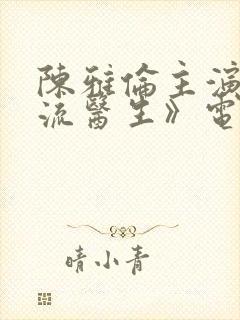 陳雅倫主演
流醫生》電
晴小青